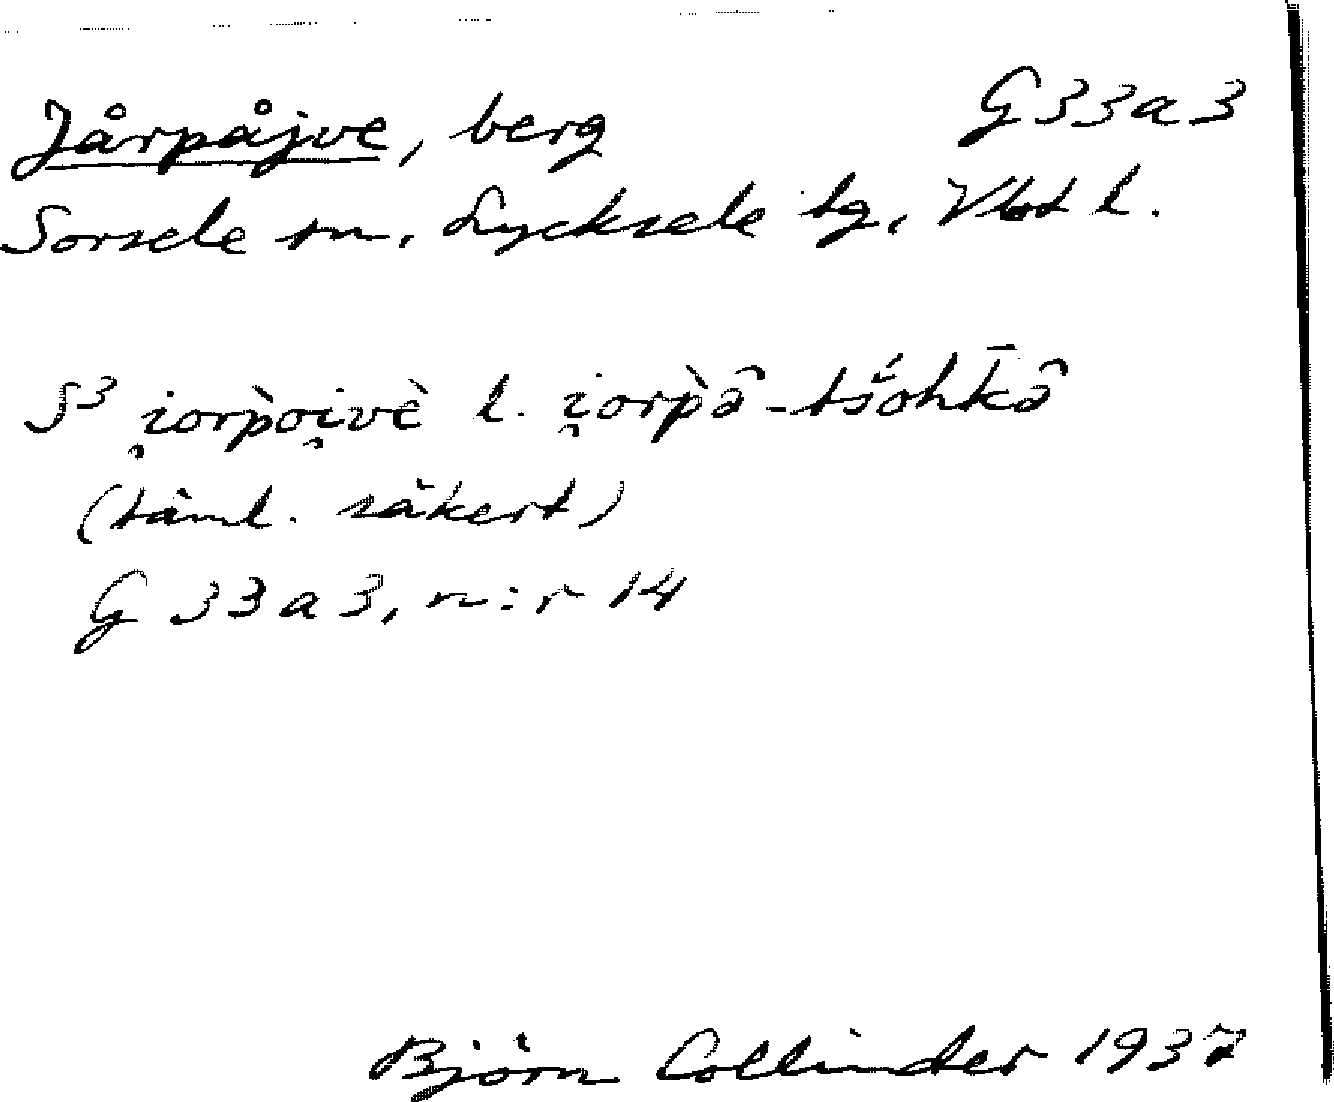 Jårpåjve, berg G33a3
Sorsele sn, Lycksele tg, Vbt l.
S³ i̯orpòi̯vè l. i̯orp̀â-tšóhk̄â
(täml. säkert)
G 33a3, n:r 14
Björn Collinder 1937